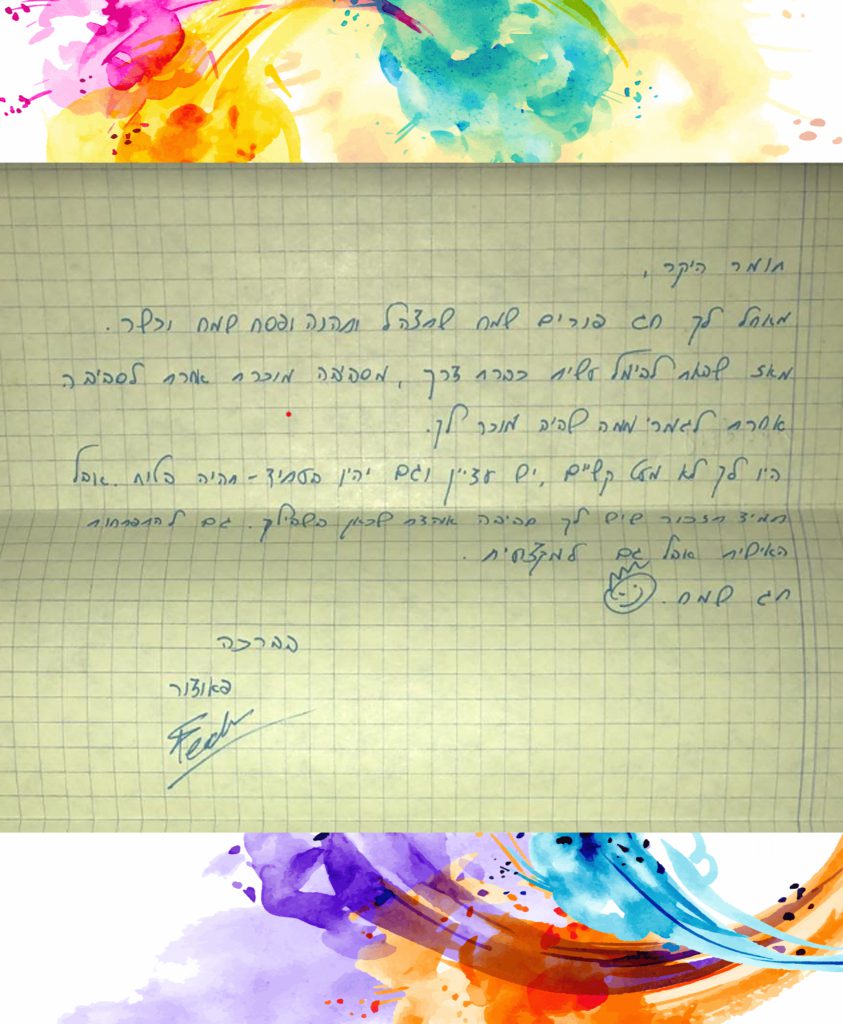 תומר היקר,
מאחל לך חג פורים שמח שתצהל ותהנה ופסח שמח וכשר.
מאז שבאת לכימל עשית כברת דרך, מסביבה מוכרת אחרת לסביבה
אחרת לגמרי ממה שהיה מוכר לך.
היו לך לא מעט קשיים, יש עדיין וגם יהיו בעתיד - תהיה בטוח. אבל
תמיד תזכור שיש לך סביבה אוהדת שכאן בשבילך. גם להתפתחות
האישית אבל גם למקצועית.
חג שמח.
בברכה